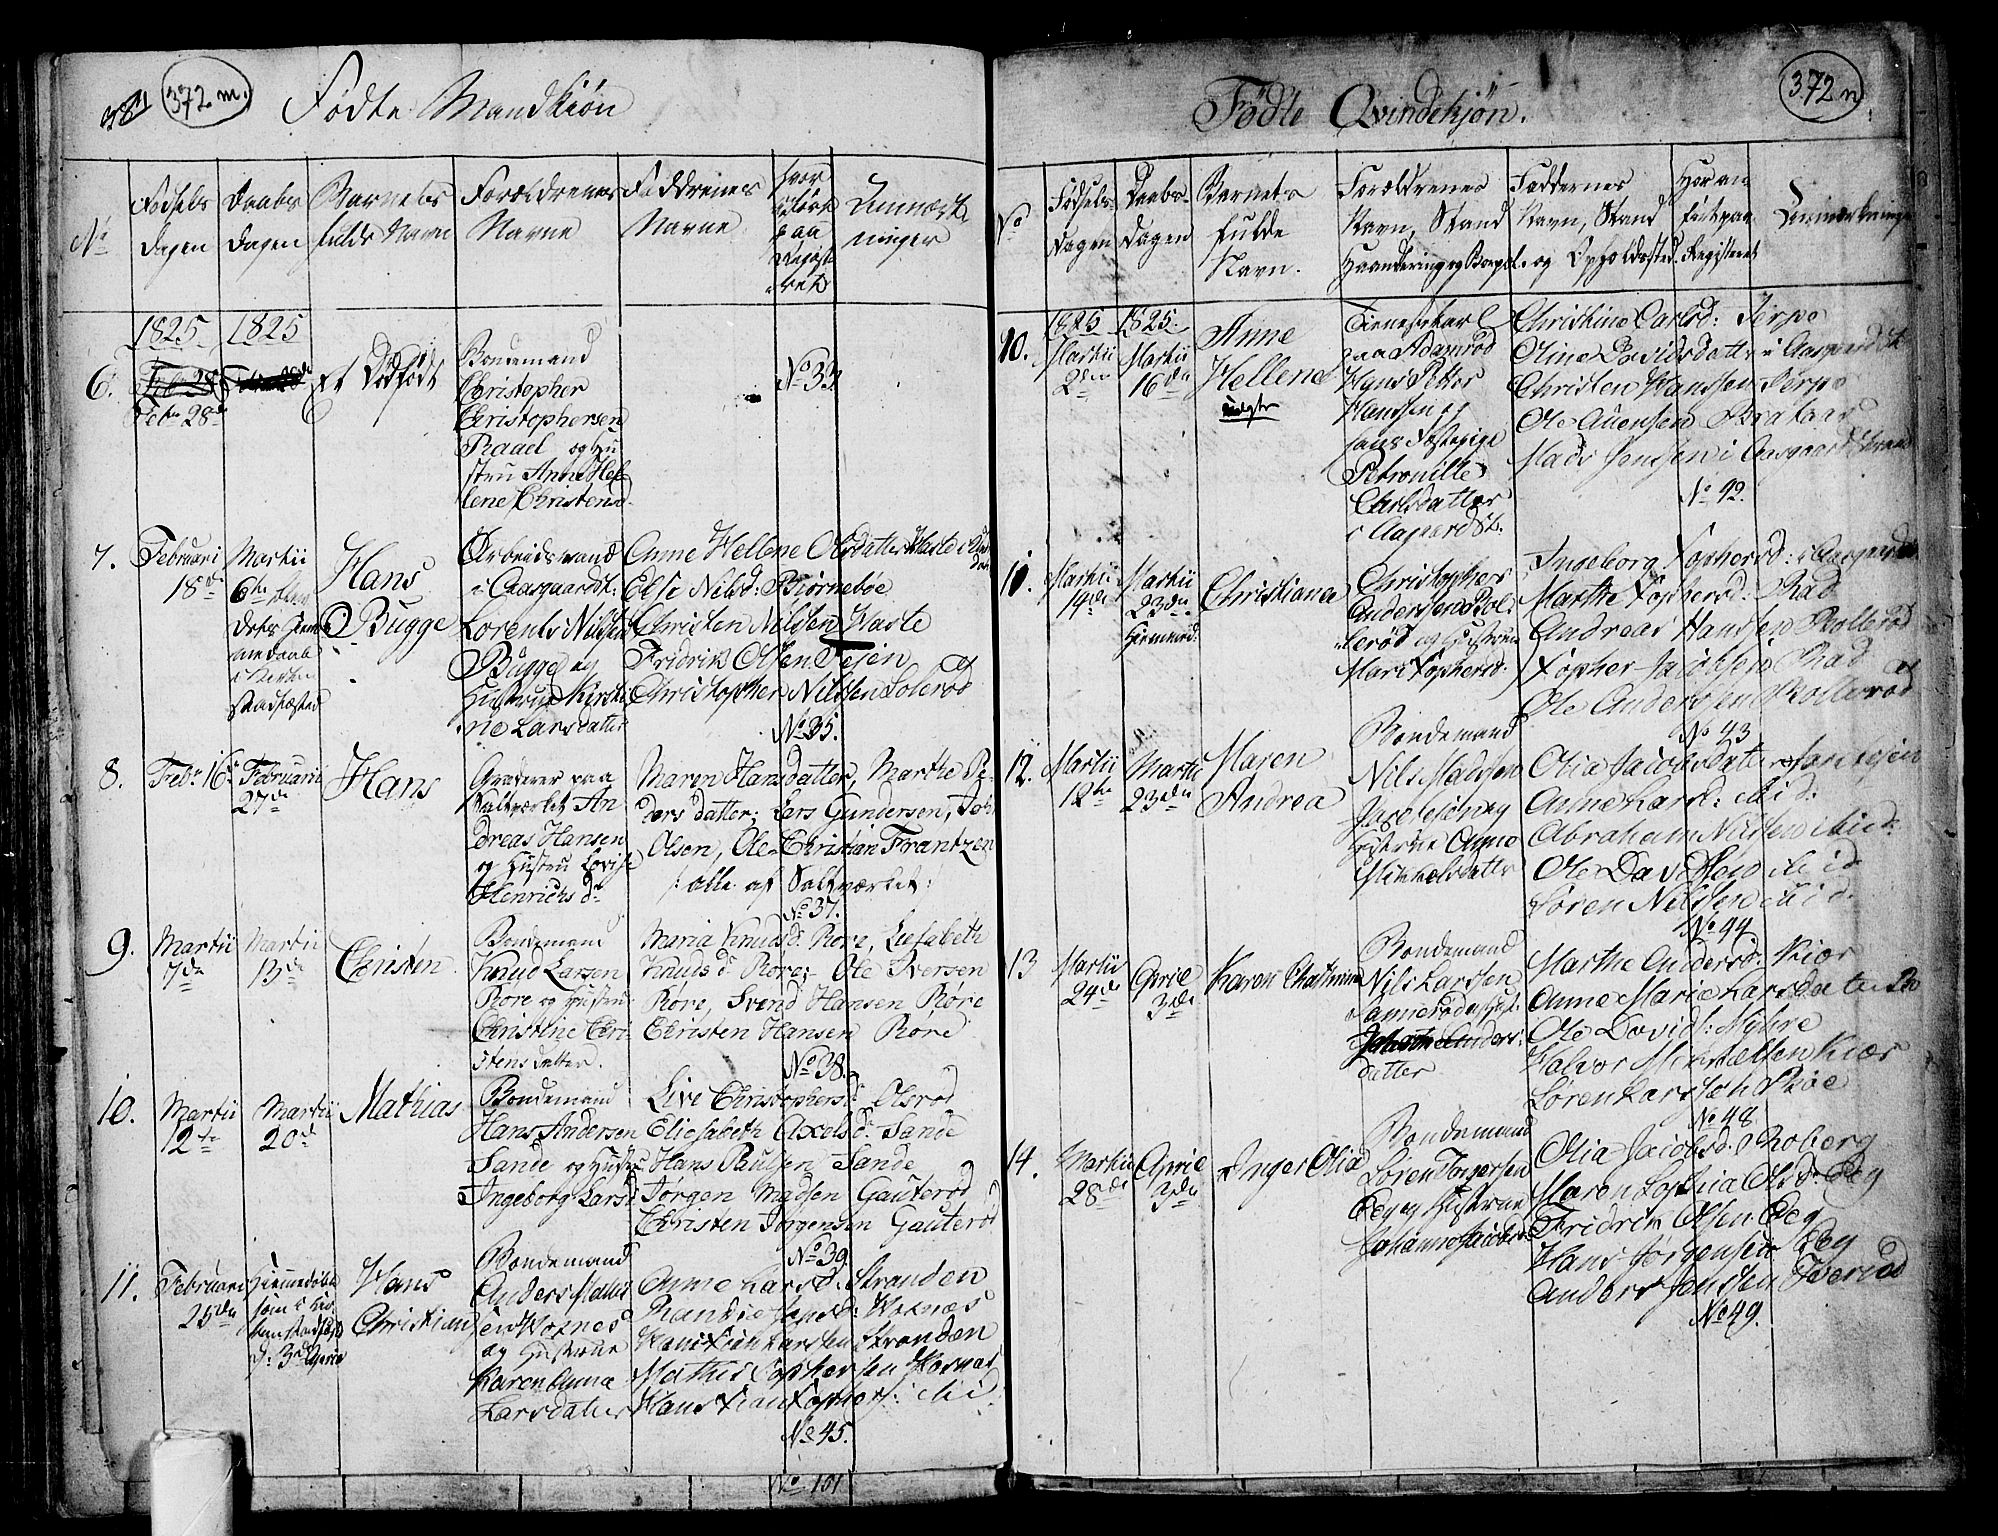 372 m.
Fødte Mandkiøn
No
Fødsels
dagen
Daabs
dagen
Barnets
fulde Navn
Forældrenes
Navne
Faddrenes
Navne
hvor
anført
paa
Regist
eret
Anmærk
ninger
6.
1825
Febr 28de
1825
et Dødfødt
Bondemand
Christopher
Christophersen
Raael og Hu
stru Anne Hel
lene Christensd.
No 33.
7.
Februari
18de
Martii
6te
Hans
Bugge
Arbeidsmand
i Aasgaardst:
Lorents Nilsen
Bugge og
Hustrue Kirsti
ne Larsdatter
Anne Hellene Olsdatter Waste
Else Nilsd: Biørnebøe
Christen Nilsen Waste
Fridrik Olsen Fejen
Christopher Nilsen Solerød
No 35.
8.
Febr. 16de
Februarii
27de
Hans
Graderer paa
Saltværket An
dreas Hansen
og Hustru Lovise
Henrichsd.
Maren Hansdatter, Marthe Pe
dersdatter; Lars Gundersen,
Olsen, Ole Christian Frantzen
/: alle af Saltværket:
No 37.
9.
Martii
7de
Martii
13de
Christen
Bondemand
Knud Larsen
Rore og Hustru
Christine Chri
stensdatter.
Maria Knudsd. Rore, Liesabeth
Knudsd. Rore; Ole Iversen
Røre, Svend Hansen Røre
Christen Hansen Rore
No 38.
10.
Martii
12te
Martii
20de
Mathias
Bondemand
Hans Andersen
Sande og Hustru
Ingeborg Larsd:
Live Christophersd. Olsrød
Eliesabeth Axelsd. Sande
Hans Paulsen Sande
Jørgen Madsen Gauterød
Christen Jørgensen Gauterød
No 39.
11.
Februari
25de
Hiemmedøbt
d: 3de April
Hans
Christian
Bondemand
Anders Mathis
sen Woxnes
og Hustrue
Karen Anna
Larsdatter
Anne Larsd. Stranden
Hans Xian Larssen Stranden
Mathis Xophersen
Hans Xian Xophers: ibid
No 45.
No 101
372 n
Fødte Qvindekjøn.
No
Fødsels-
Dagen
Daabs-
Dagen
Barnets
fulde
Navn.
Forældrenes
Navn, Stand
Haandtering og Bopæl.
Faddernes
Navn, Stand
og Opholdssted.
Hor an-
ført paa
Registeret
Anmærkninger
10.
1825
Martii
2den
1825.
Martii
16de
Anne
Hellene
uægte
Tieneste karl
paa Adamrød
Hans Petter
Hanssen og
hans Fæstepige
Petronille
Carlsdatter
i Aagaardst.
Christine Carlsd: Serpe
Oline Davidsdatter i Aasgaardst
Christen Hanssen Serpe
Ole Auensen Brataas
Mads Jenssen i Aasgaardstrand
No 42.
11.
Martii
14de
Martii
23de
Hiemmed.
Christiane
Christopher
Anderssen Bol
lerød og Hustrue
Mari Xophersd.
Ingeborg Xophersd: i Aasgaardst
Marthe Xophersd. Rad
Andreas Hanssen Rollerød
Xopher Jacobsen Rad
Ole Anderssen Bollerød
No 43
12.
Martii
12te
Martii
23de
Maren
Andrea
Bondemand
Nils Madssen
Jarelsøen og
Hustrue Anne
Mikkelsdatter
Olia Jacobsdatter
Anne Larsd: ibid:
Abraham Nilssen ibid:
Ole Davidssen ibid
Søren Nilssen ibid.
No 44
13
Martii
24de
April
3de
Karen Chatrine
Bondemand
Nils Larssen
datter
Marthe Andersd. Kiær
Anne Marie Larsdatter
Ole Davids: Myhre
Halvor Mikkelsen Kiær
Søren Larssen Røe
No 48
14.
Martii
28de
April
3de
Inger Olia
Bondemand
Søren Torgersen
Eeg og Hustrue
Johanne Jacobsd
Olia Jacobsd. Roberg
Maren Sophia Olsd. Eeg
Fridrik Olsen Eeg
Hans Jørgensen Eeg
Anders Jenssen Tverrød
No 49.